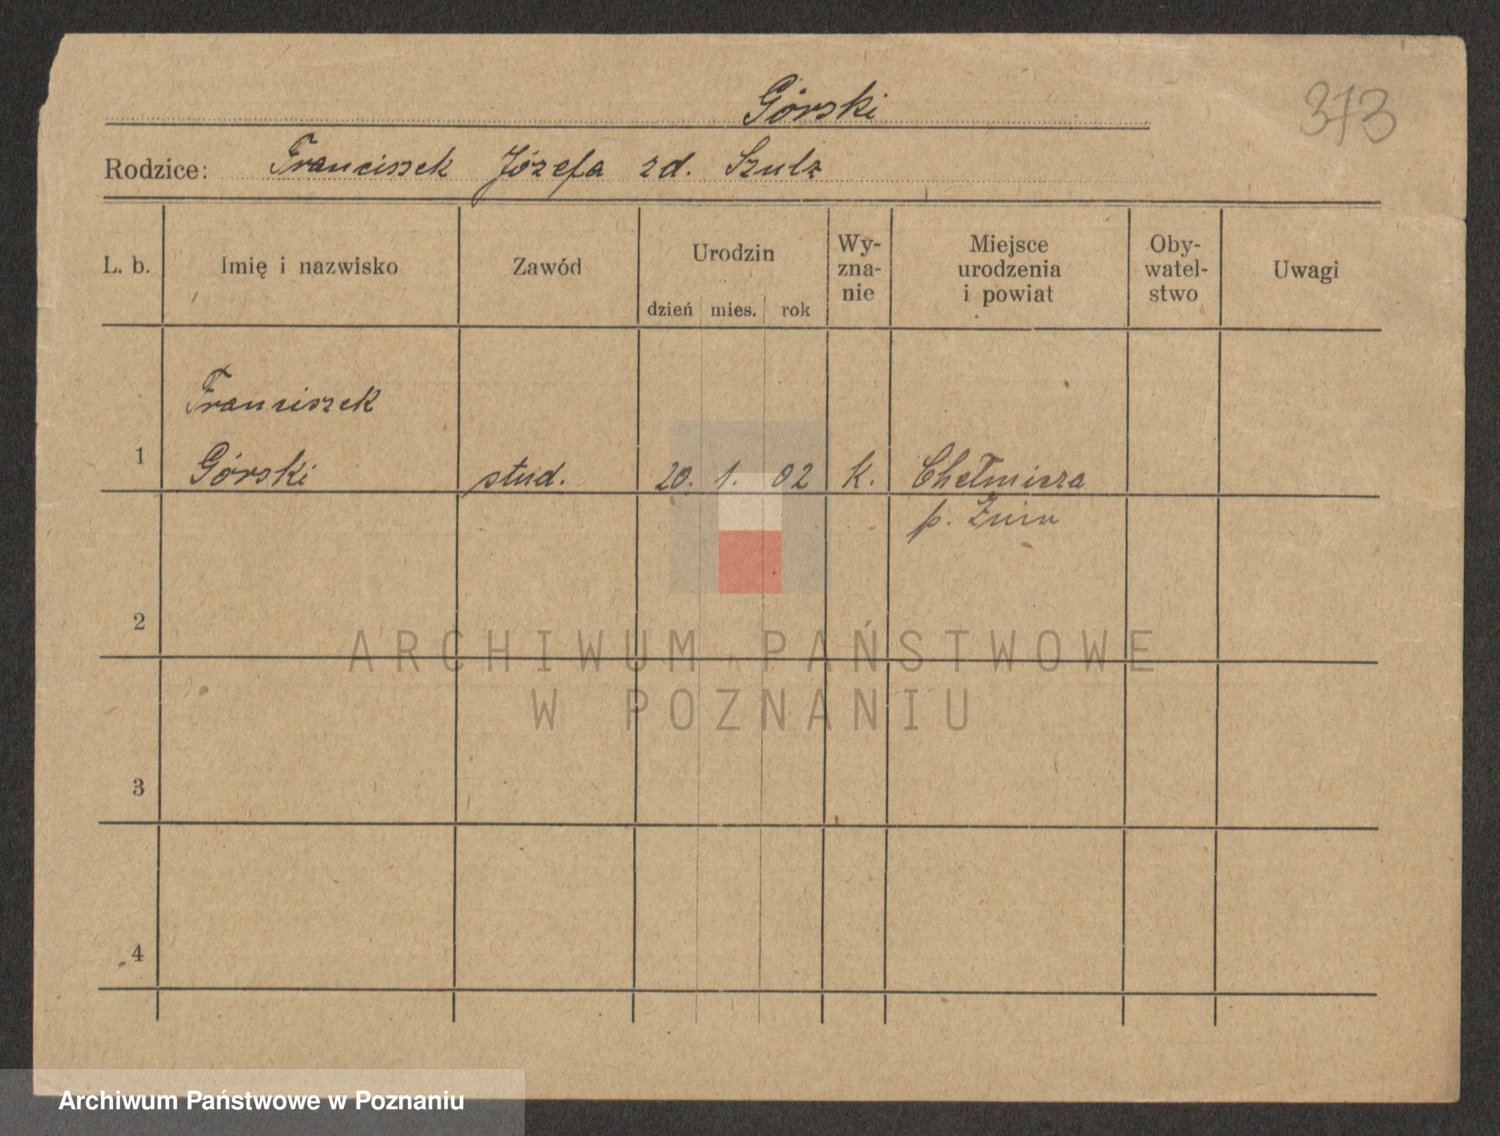 Górski
373
Rodzice: Franciszek Józefa zd. Szulz
L. b.
Imię i nazwisko
Zawód
Urodzin
dzień mies. rok
Wy-
zna-
nie
Miejsce
urodzenia
i powiat
Oby-
watel-
stwo
Uwagi
Franciszek
1 Górski stud. 20. 1. 02 k. Chełmiera
p. Żnin
2
3
4
ARCHIWUM PAŃSTWOWE
W POZNANIU
Archiwum Państwowe w Poznaniu